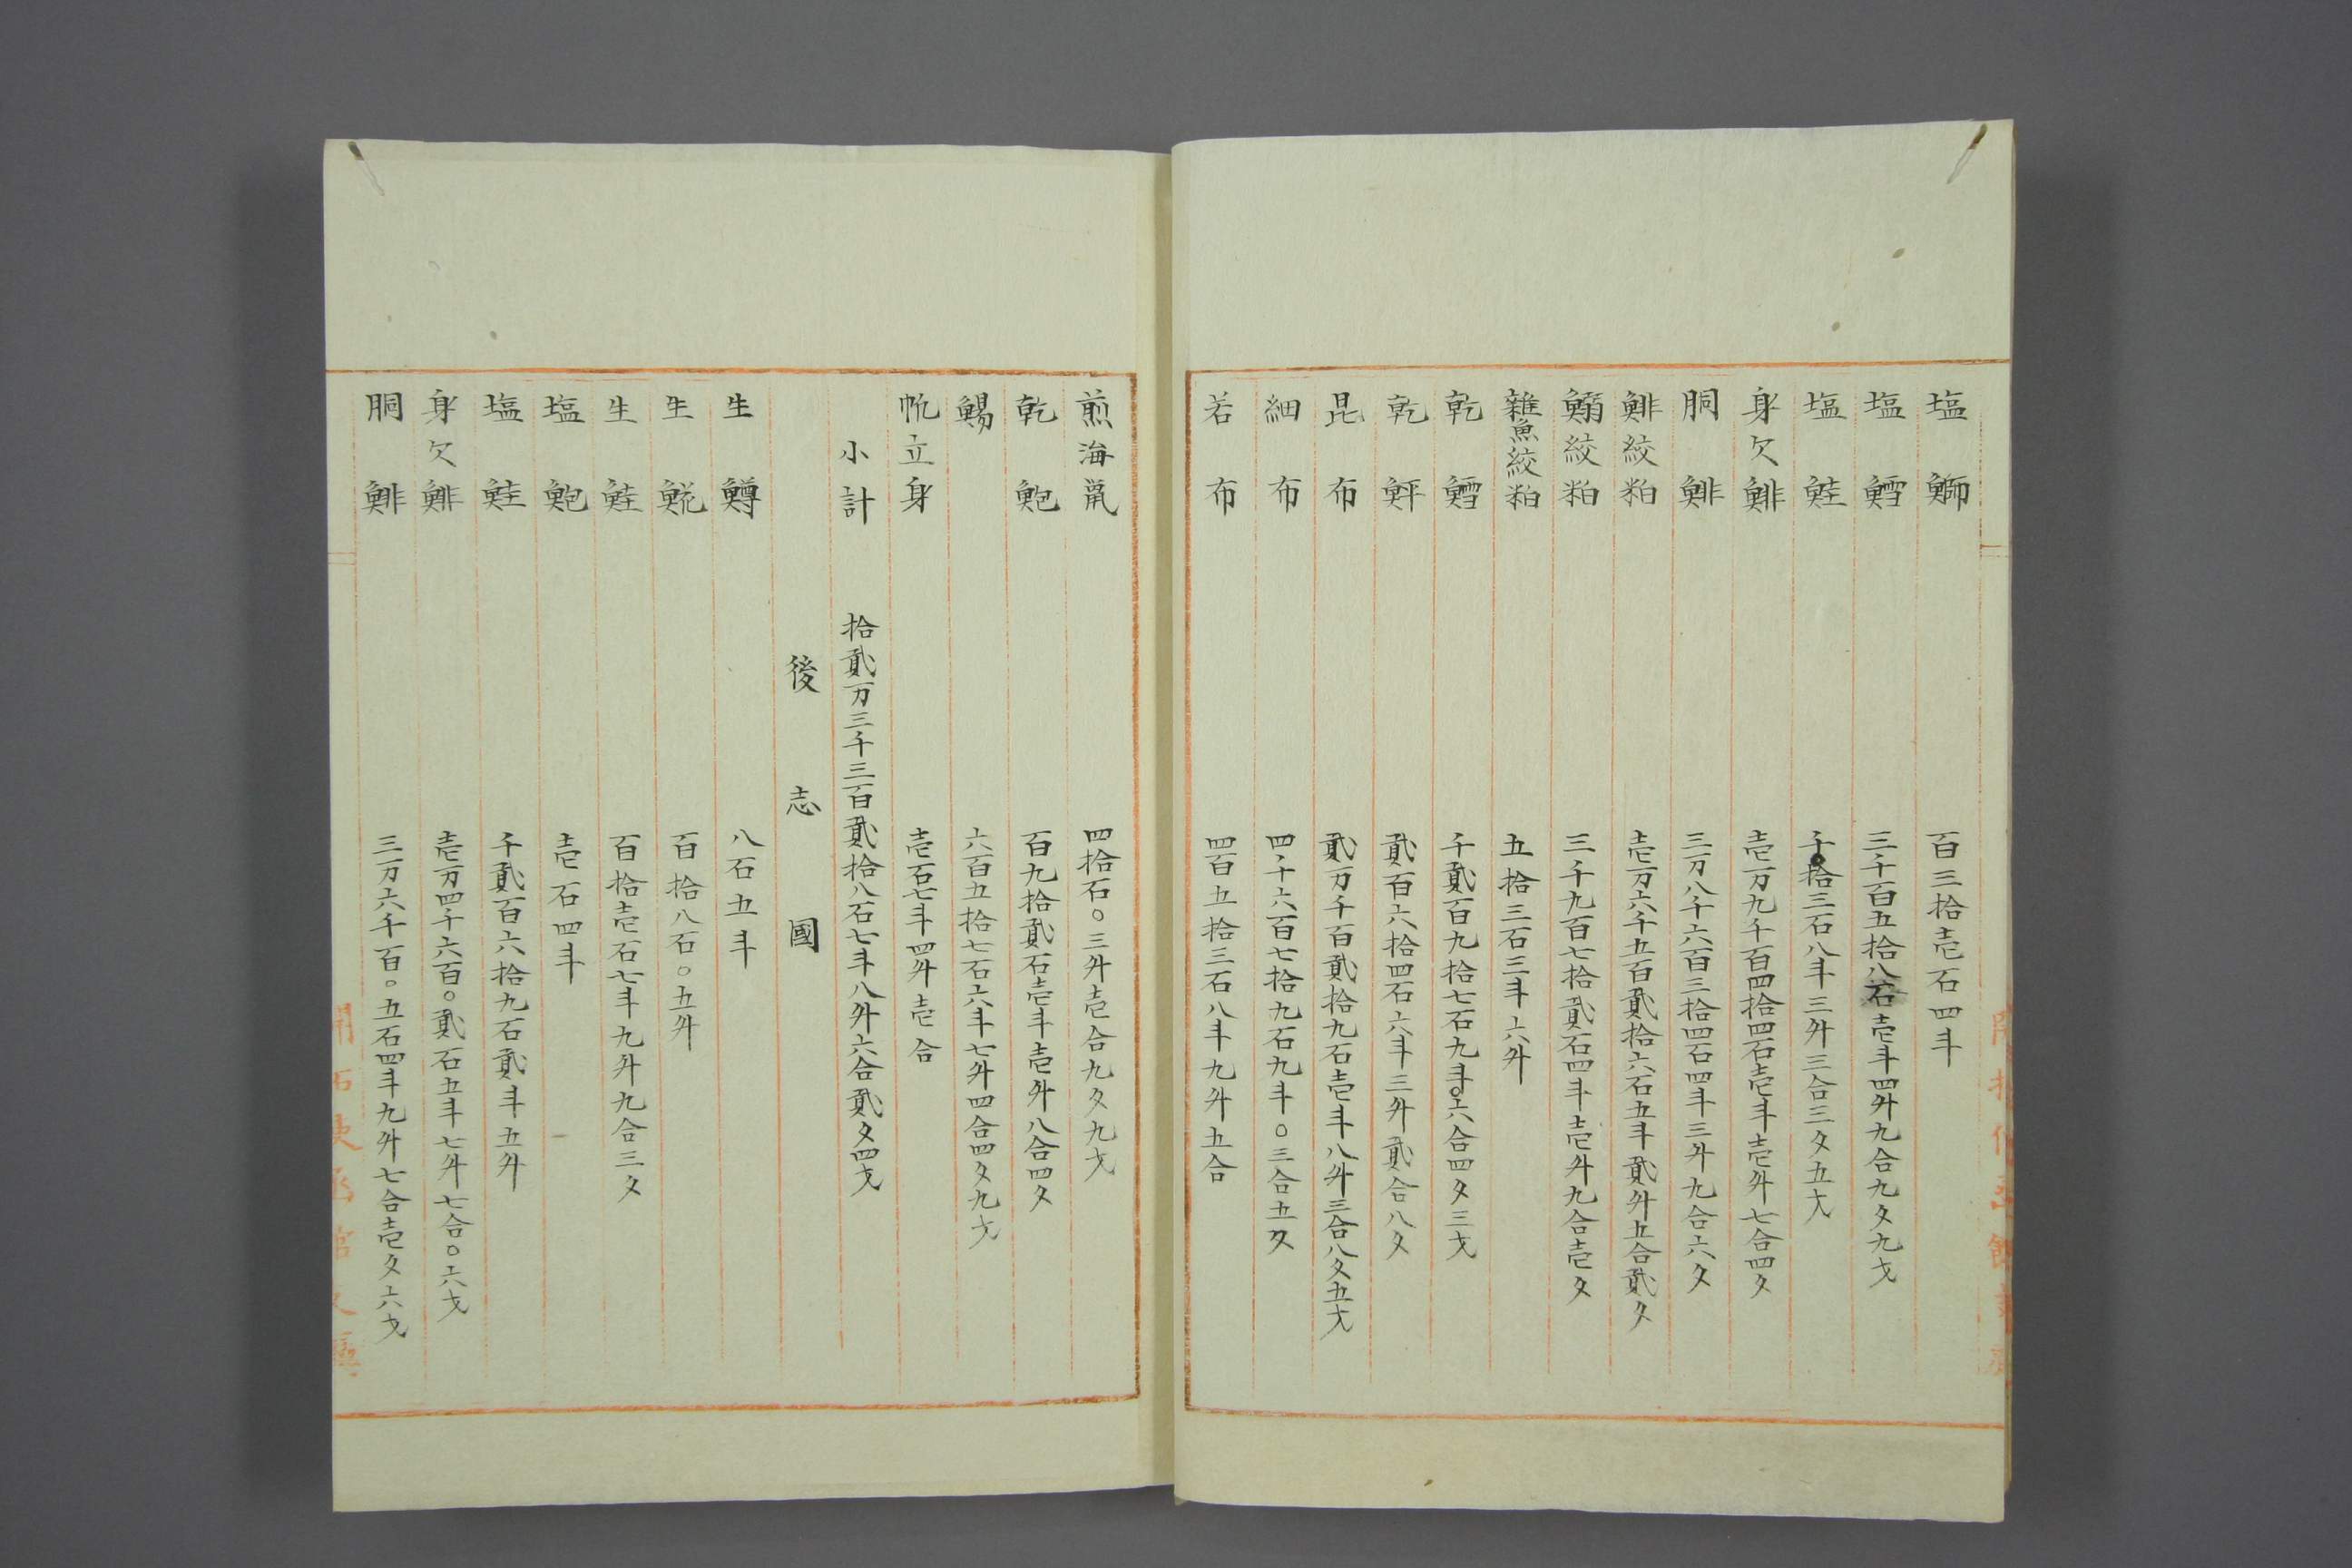 塩鰤 百三拾壱石四斗
塩鱈 三千百五拾八石壱斗四升九合九夕九才
塩鮭 千〇拾三石八斗三升三合三夕五才
身欠鯡 壱万九千百四拾四石壱斗壱升七合四夕
胴鯡 三万八千六百三拾四石四斗三升九合六夕
鯡絞粕 壱万六千五百貮拾六石五斗貮升五合貮夕
鰯絞粕 三千九百七拾貮石四斗壱升九合壱夕
雜魚絞粕 五拾三石三斗六升
乾鱈 千貮百九拾七石九斗〇六合四夕三才
乾鮃 貮百六拾四石六斗三升貮合八夕
昆布 貮万千百貮拾九石壱斗八升三合八夕五才
細布 四千六百七拾九石九斗〇三合五夕
若布 四百五拾三石八斗九升五合
煎海鼠 四拾石〇三升壱合九夕九才
乾鮑 百九拾貮石壱斗壱升八合四夕
鯣 六百五拾七石六斗七升四合四夕九才
帆立身 壱石七斗四升壱合
小計 拾貮万三千三百貮拾八石七斗八升六合貮夕四才
後志國
生鱒 八石五斗
生𩸽 百拾八石〇五升
生鮭 百拾壱石七斗九升九合三夕
塩鮑 壱石四斗
塩鮭 千貮百六拾九石貮斗五升
身欠鯡 壱万四千六百〇貮石五斗七升七合〇六才
胴鯡 三万六千百〇五石四斗九升七合壱夕六才